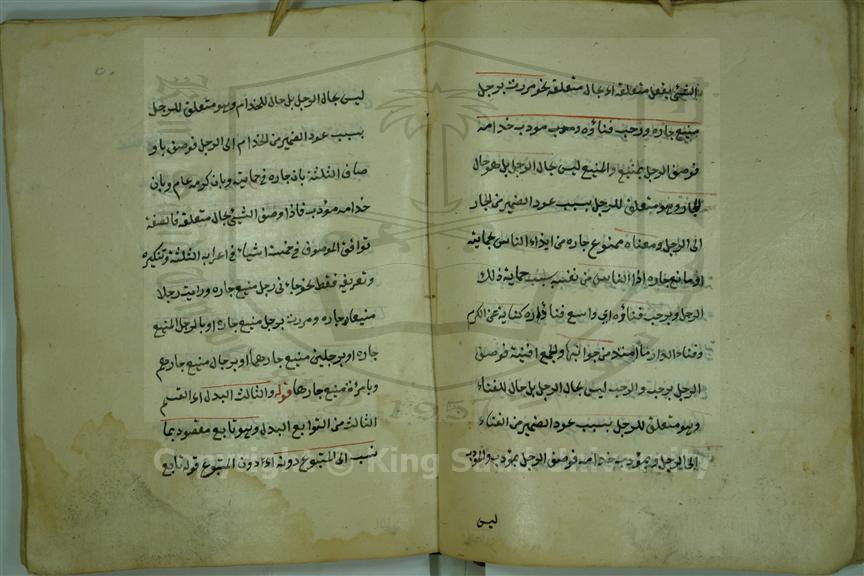 الشيئ بفعل متعلقه اى بحال متعلقه نحو مررت برجل
منيع جاره ورحب فناؤه ومؤدب خدامه
فوصف الرجل بمنيع والمنيع ليس بحال الرجل بل هو حال
الجار وهو متعلق للرجل بسبب عود الضمير من الجار
الى الرجل ومعناه ممنوع جاره من ايذاء الناس بحمايته
او مانع جاره اذا الناس من نفسه بسبب حماية ذلك
الرجل وبرحب فناؤه اي واسع فناء داره كناية عن الكرم
وفناء الدار ما امتد من جوانبها والجمع افنية فوصف
الرجل برحب والرحب ليس بحال الرجل بل حال للفناء
وهو متعلق للرجل بسبب عود الضمير من الفناء
الى الرجل وبمؤدب خدامه فوصف الرجل بمؤدب والمؤدب
ليس
ليس بحال الرجل بل حال للخدام وهو متعلق للرجل
بسبب عود الضمير من الخدام الى الرجل فوصف باو
صاف الثلثة بان جاره في حمايته وبان كرمه عام وبان
خدامه مؤدب فاذا وصف الشيئ بحال متعلقه فالصفة
توافق الموصوف في خمسة اشياء في اعرابه الثلثة وتنكيره
وتعريفه فقط نحو جاءني رجل منيع جاره ورايت رجلا
منيعا جاره ومررت برجل منيع جاره او بالرجل المنيع
جاره او برجلين منيع جارهما او برجال منيع جارهم
وبامرأة منيع جارها قوله والثالث البدل اى القسم
الثالث من التوابع البدل وهو تابع مقصود بما
نسب الى المتبوع دونه اى دون المتبوع قوله تابع
Copyright © King Saud University
1957